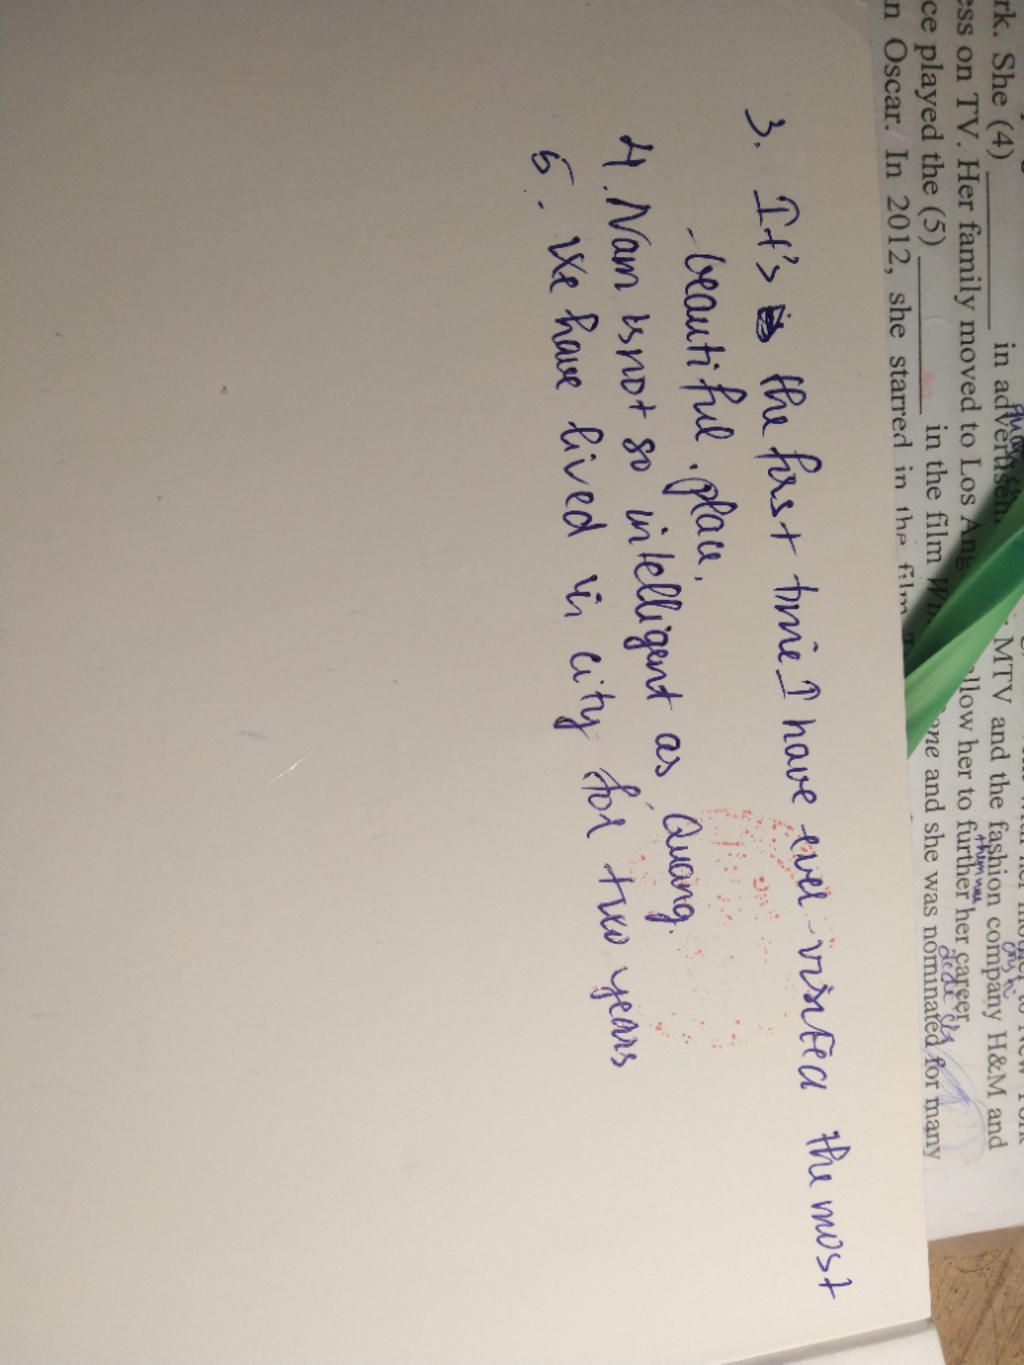 rk. She (4) in
ess on TV. Her family moved to Los MTV and the fashion company H&M and
ce played the (5) in the film allow her to further her career
n Oscar. In 2012, she starred in the film one and she was nominated for many
3. It's the first time I have ever visited the most
beautiful place.
4. Nam is not so intelligent as Quang.
5. We have lived in city for two years